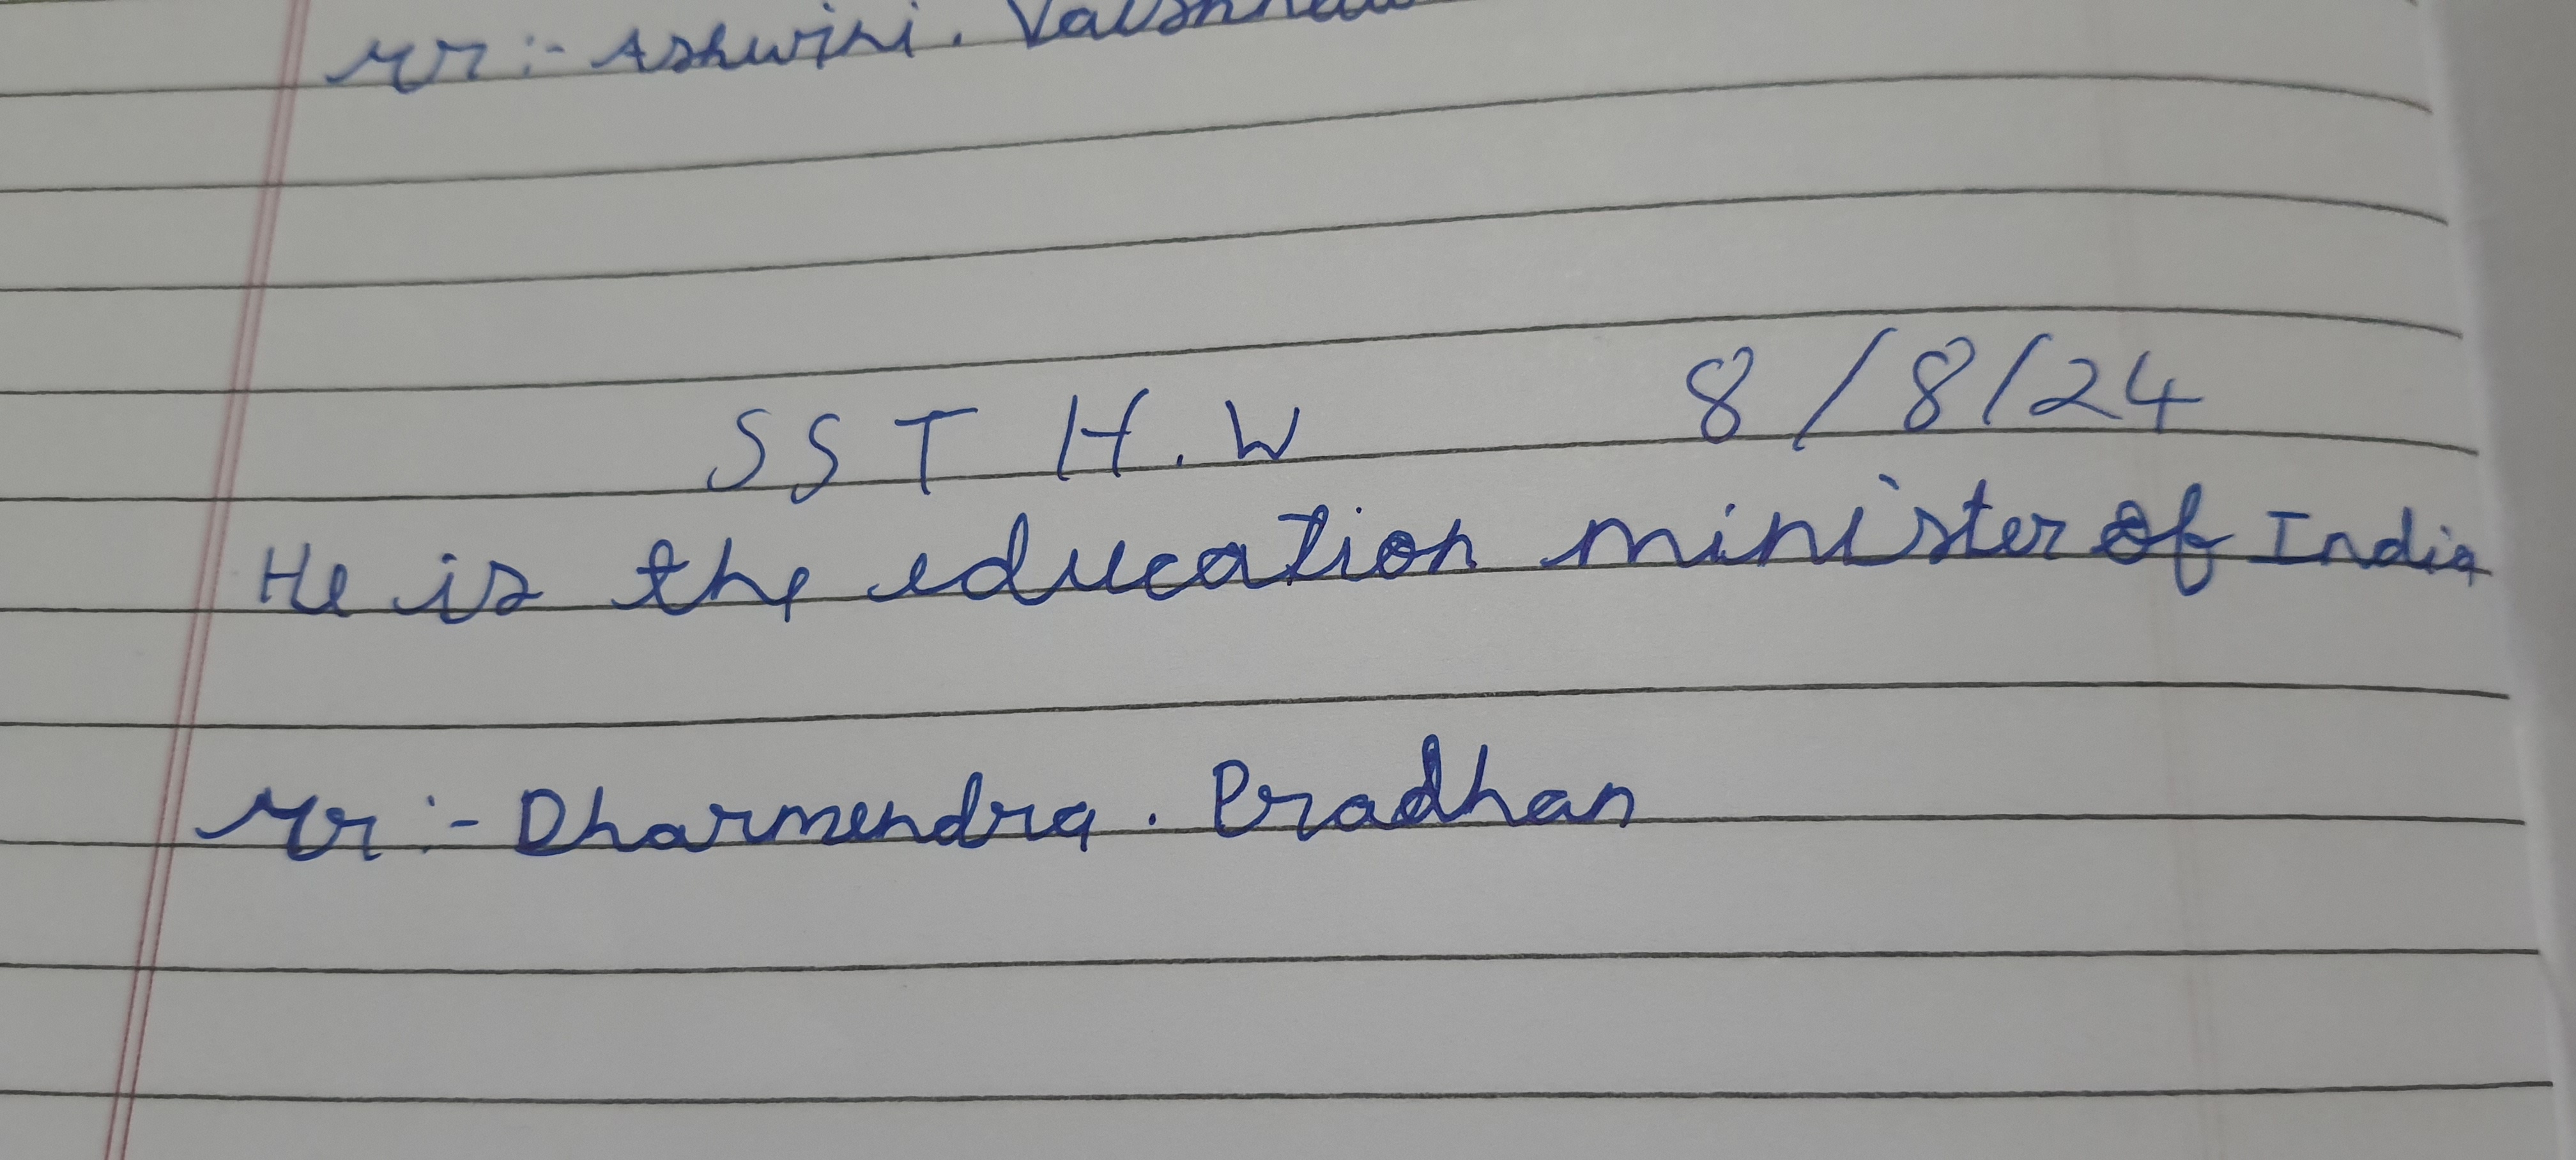 Mr :- Ashwini . Vaishnaw
SST H.W 8/8/24
He is the education minister of India
Mr :- Dharmendra . Pradhan